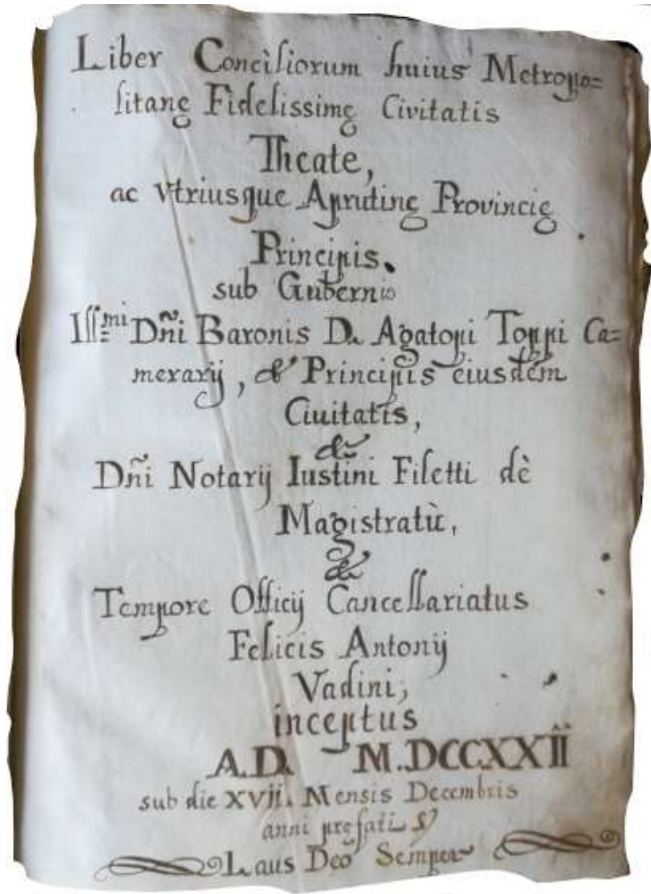 Liber Conciliorum huius Metropo=
litanę Fidelissimę Civitatis
Theate,
ac vtriusque Aprutinę Provincię
Principis.
sub Gubernio
Ill:mi Dñi Baronis D. Agatopi Toppi Ca=
merarij, & Principis eiusdem
Ciuitatis,
&
Dñi Notarij Iustini Filetti dè
Magistratù,
&
Tempore Officij Cancellariatus
Felicis Antonij
Vadini,
inceptus
A.D. M.DCCXXII
sub die XVII. Mensis Decembris
anni prefati
Laus Deo Semper